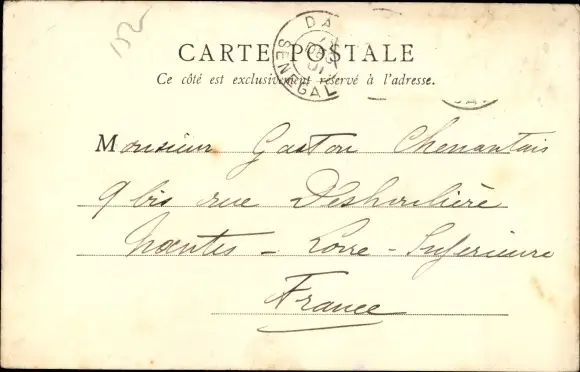 152
CARTE POSTALE
Ce côté est exclusivement réservé à l'adresse.
DA
SENEGAL
Monsieur Gaston Chenantais
9 bis rue Deshoulière
Nantes - Loire - Inférieure
France